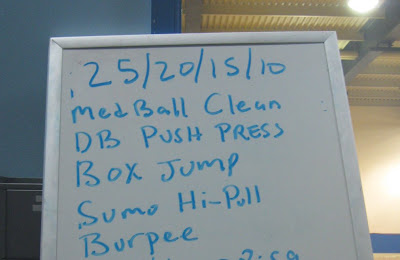 25/20/15/10
MedBall Clean
DB PUSH PRESS
Box Jump
Sumo Hi-Pull
Burpee